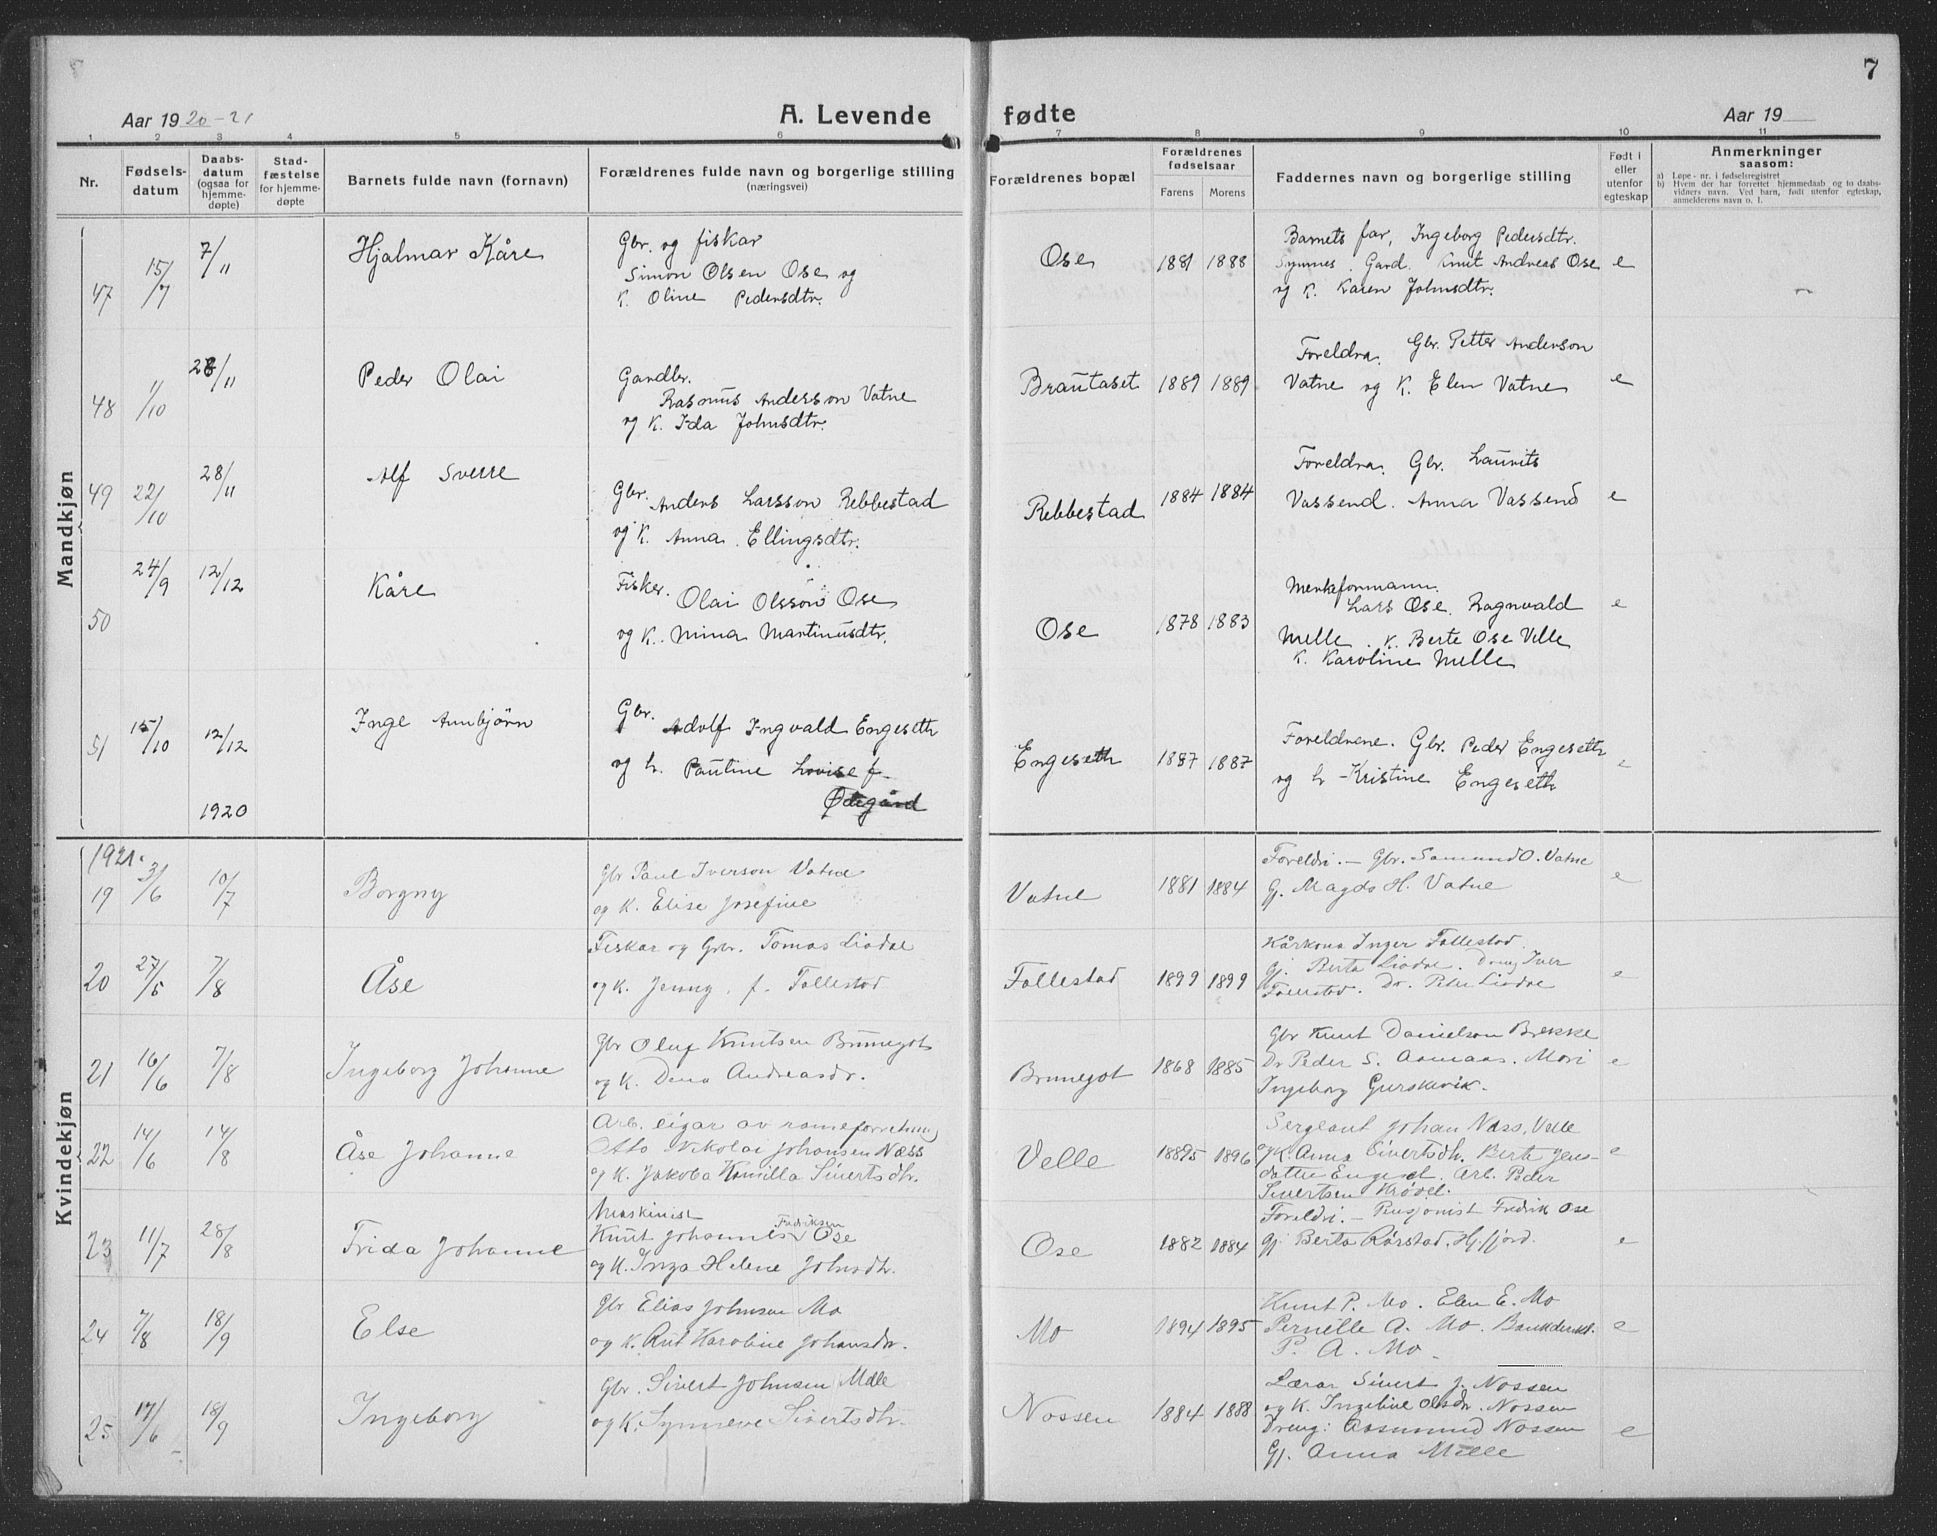 Aar 1920-21
A. Levende
fødte
Aar 19
7
1 2 3 4 5 6 7 8 9 10 11
Nr.
Fødsels-
datum
Daabs-
datum
(ogsaa for
hjemme-
døpte)
Stad-
fæstelse
for hjemme-
døpte
Barnets fulde navn (fornavn)
Forældrenes fulde navn og borgerlige stilling
(næringsvei)
Forældrenes bopæl
Forældrenes
fødselsaar
Farens Morens
Faddernes navn og borgerlige stilling
Født i
eller
utenfor
egteskap
Anmerkninger
saasom:
a) Løpe-nr. i fødselsregistret
b) Hvem der har forrettet hjemmedaab og to daabs-
vidners navn. Ved barn, født utenfor egteskap,
anmelderens navn o. l.
Mandkjøn
47 15/7 7/11 Hjalmar Kåre
Gbr. og fiskar
Simon Olsen Ose og
K. Oline Pedersdtr.
Ose 1881 1888
Barnets far, Ingeborg Pedersdtr.
Synnes. Gard. Knut Andreas Ose
og K. Karen Johnsdtr.
e
48 1/10 28/11 Peder Olai
Gardbr.
Rasmus Andersson Vatne
og K. Ida Johnsdtr.
Brautaset 1889 1889
Foreldra. Gbr. Petter Anderson
Vatne og K. Elen Vatne
e
49 22/10 28/11 Alf Sverre
Gbr. Anders Larsson Rebbestad
og K. Anna Ellingsdtr.
Rebbestad 1884 1884
Foreldra. Gbr. Laurits
Vassend. Anna Vassend
e
50 24/9 12/12 Kåre
Fisker. Olai Olsson Ose
og K. Nina Martinusdtr.
Ose 1878 1883
Lars Ose. Ragnvald
Melle. K. Berte Ose Velle
K. Karoline Melle
e
51 15/10 12/12 Inge Annbjörn
Gbr. Adolf Ingvald Engeseth
og h. Pauline Lovise f.
Ødegård
Engeseth 1887 1887
Foreldrene. Gbr. Peder Engeseth
og h - Kristine Engeseth
e
1920
Kvindekjøn
1921.
19 3/6 10/7 Borgny
Gbr Paul Iverson Vatne
og K. Elise Josefine
Vatne 1881 1884
Foreldri. - Gbr. Samund O. Vatne
Gj. Magda H. Vatne
e
20 27/5 7/8 Åse
Fiskar og Gbr. Tomas Liadal
og K. Jenny, f. Follestad
Follestad 1899 1899
Kårkona Inger Follestad.
Gj. Berta Liadal. Dreng Iver
Follestad. Dr. Peter Liadal
e
21 16/6 7/8 Ingeborg Johanne
Gbr Oluf Knutsen Brunegot
og K. Dena Andreasdr.
Brunegot 1868 1885
Gbr Knut Danielson Brekke
Dr Peder S. Aamaas. Mori
Ingeborg Gurskevik.
e
22 14/6 14/8 Åse Johanne
Arb. eigar av rameforretning
Otto Nikolai Johansen Næss
og K. Jakoba Kamilla Sivertsdtr.
Velle 1895 1896
Sergeant Johan Næss, Velle
og K. Anna Sivertsdtr. Berte Jens-
datter Engeset. Arb. Peder
Sivertsen Krøvel.
e
23 11/7 28/8 Frida Johanne
Maskinist
Knut Johannes Fredriksen Ose
og K. Inga Helene Johnsdtr.
Ose 1882 1884
Foreldri. - Pensjonist Fredrik Ose
Gj Berta Rørstad, Hj.fjord.
e
24 7/8 18/9 Else
Gbr Elias Johnsen Mo
og K. Ant Karoline Johansdr.
Mo 1894 1895
Knut P. Mo. Elen E. Mo
Pernille A. Mo.
P. A. Mo.
e
25 17/6 18/9 Ingeborg
Gbr. Sivert Johnsen Melle
og K. Synneve Sivertsdtr.
Nossen 1884 1888
Lærar Sivert J. Nossen
og K. Ingeline Olsdr. Nossen
Dreng: Aasmund Nossen
Gj. Anna Melle
e